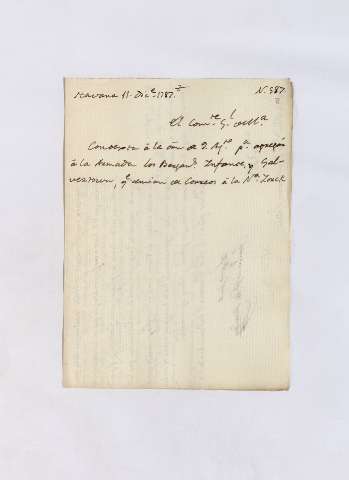 Havana 11 Dic.e 1787.
N. 587
El Com.te G.l de Ma
Contexta à la orn de 2. Ag.to p.a agregar
à la Armada los Bergant.s Infante, y Gal-
veztown, q.e servian de Correos à la